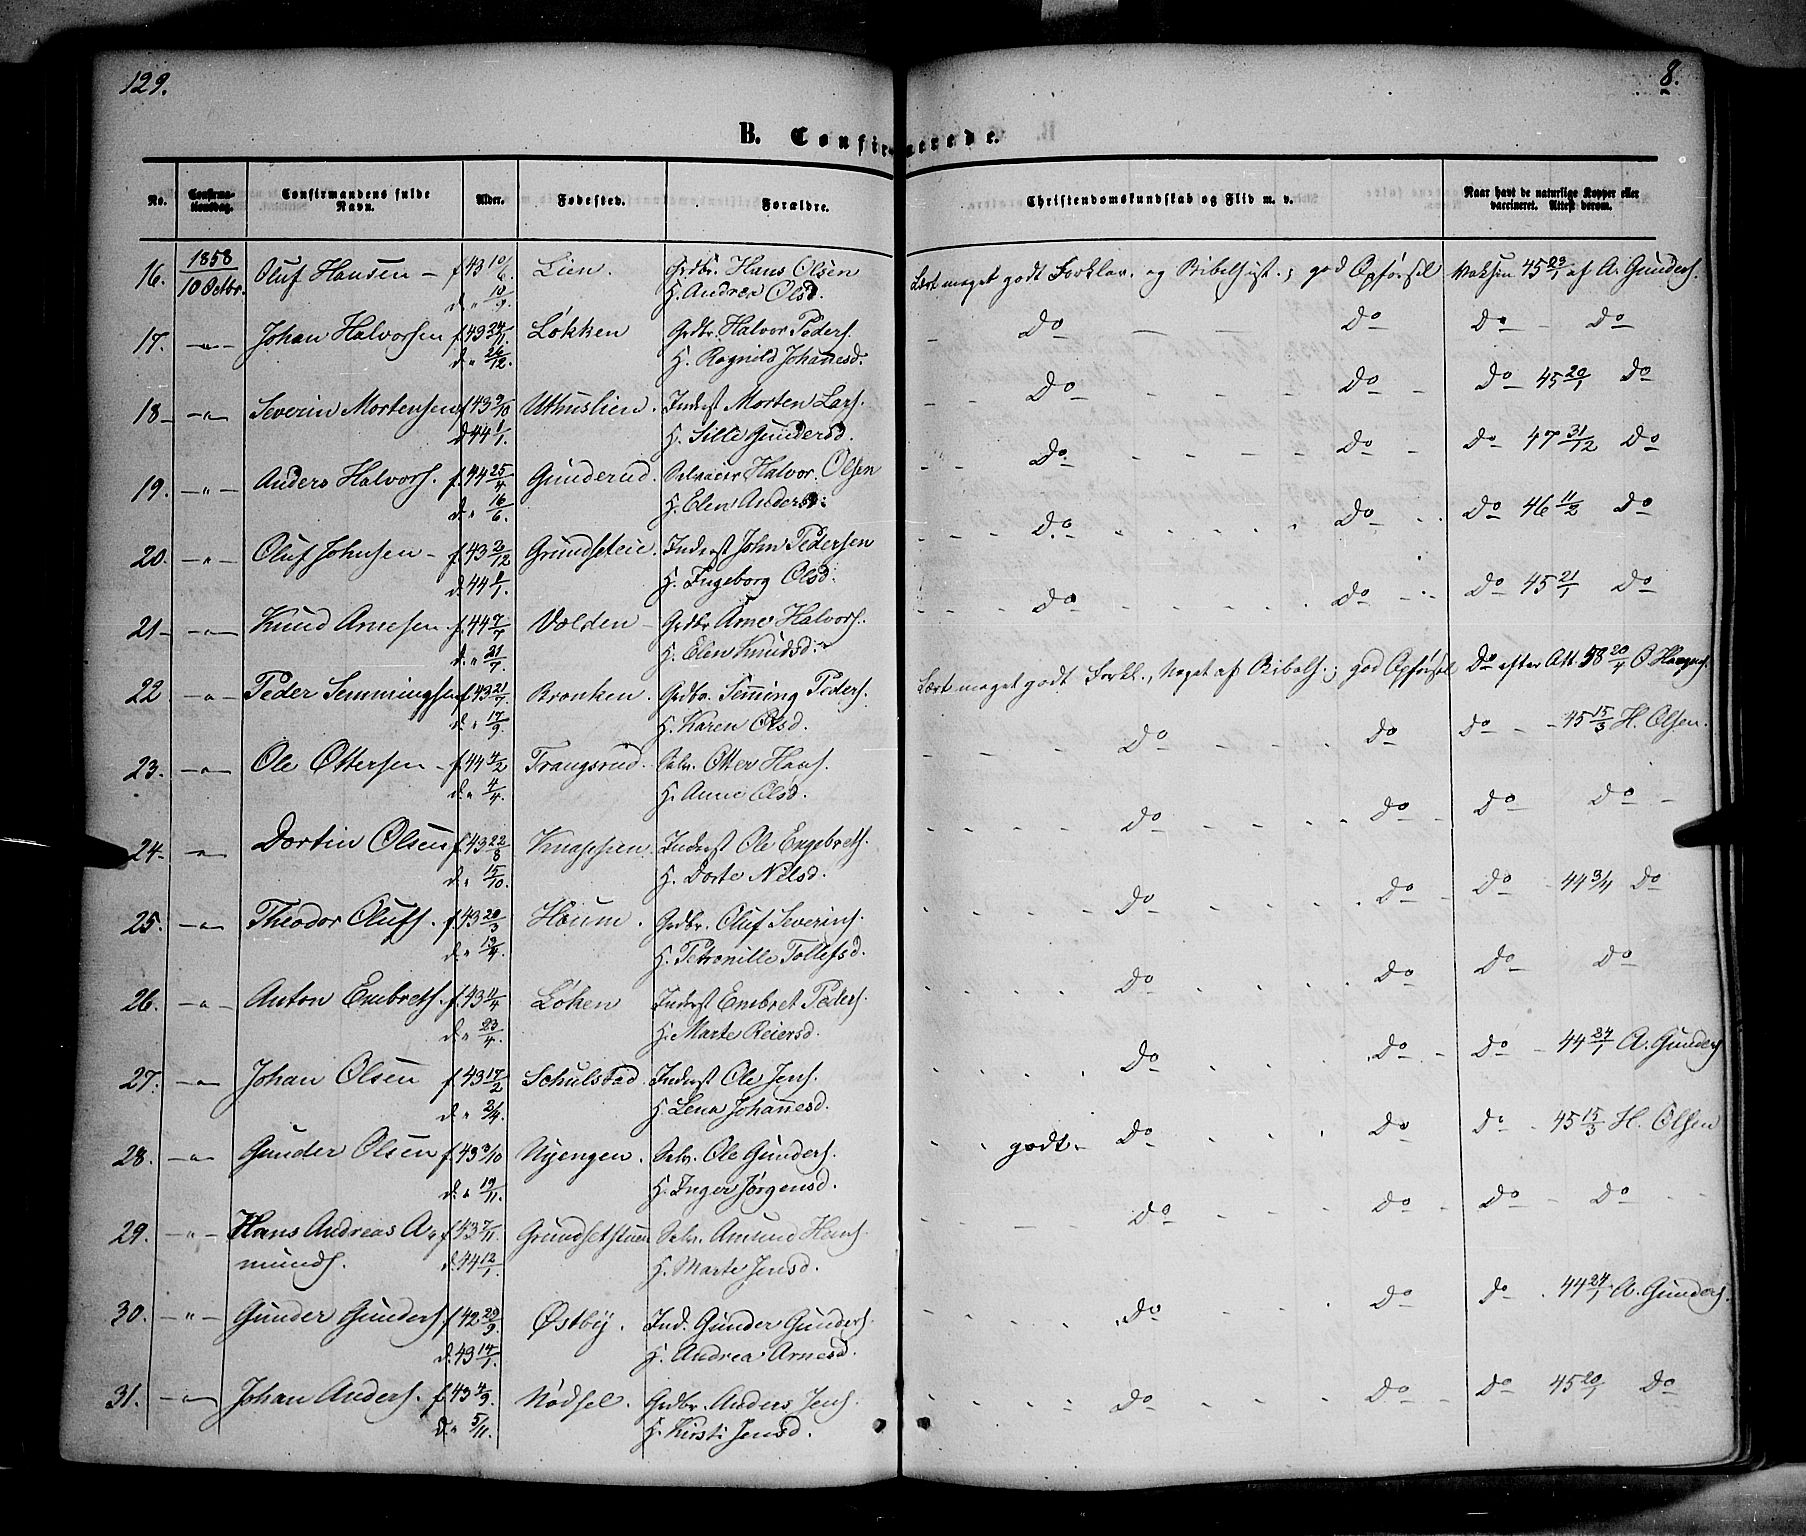 129.
8.
B. Confirmerede.
No.
Confirma-
tionsdag.
Confirmandens fulde
Navn.
Alder.
Fødested.
Forældre.
Christendomskundskab og Flid m. v.
Naar havt de naturlige Kopper eller
vaccineret. Attest derom.
16. 1858 10 Octbr. Oluf Hansen - f. 43 10/6 Lien. Grdbr. Hans Olsen Lært meget godt Forklar. og Bibelhist.; god Opførsel Vaksin 45 23/1 af A. Gunders.
d. " 10/9 H. Andrea Olsd.
17. -"- Johan Halvorsen f. 43 24/11 Løkken Grdbr. Halvor Peders. Do Do Do Do
d. " 26/12. H. Ragnild Johannesd.
18 -"- Severin Mortensen f. 43 9/10 Uthuslien. Inderst Morten Lars. Do Do Do 45 20/1 Do
d. 44 1/1. H. Sille Gundersd.
19. -"- Anders Halvors. f. 44 25/4 Gunderud. Halvor Olsen Do Do Do 47 31/12 Do
d. " 16/6. H. Elen Andersd.
20. -"- Oluf Johnsen - f. 43 2/12 Grundseteie. Inderst John Pedersen Do Do Do 46 11/2 Do
d. 44 1/1. H. Ingeborg Olsd.
21 -"- Knud Arnesen f. 44 7/7 Volden - Grdbr. Arne Halvors. Do Do Do 45 21/1 Do
d. " 21/7. H. Elen Knudsd.
22 -"- Peder Semmingsen f. 43 21/7 Bronken. Grdbr. Semming Peders. Lært meget godt Forkl., Noget af Bibelh.; god Opførsel Do efter Att. 58 20/4 O. Haagens.
d. " 17/9. H. Karen Olsd.
23. -"- Ole Ottersen - f. 44 4/2 Trangsrud. Selv. Otter Hans. Do Do Do 45 15/3 H. Olsen.
d. " 4/4. H. Anne Olsd.
24. -"- Dortin Olsen f. 43 22/8 Knappen Inderst Ole Engebreths. Do Do Do Do
d. " 15/10. H. Dorte Nilsd.
25. -"- Theodor Olufs. f. 43 20/3 Houm. Grdbr. Oluf Severins. Do Do Do 44 3/4 Do
d. " H. Petronille Tollefsd.
26. -"- Anton Embreths. f. 43 4/4 Løken Inderst Embret Peders. Do Do Do Do
d. " 23/4. H. Marte Reiersd.
27. -"- Johan Olsen f. 43 17/2 Schulstad. Inderst Ole Jens. Do Do Do 44 24/1 A. Gunders
d. " 2/4. H. Lena Johannesd.
28. -"- Gunder Olsen f. 43 3/10 Nyengen. Selv. Ole Gunders. godt. Do Do Do 45 15/3 H. Olsen
d. " 19/11. H. Inger Jørgensd.
29. -"- Hans Andreas A- f. 43 7/11. Grundsetstuen Selv. Amund Hans. Do Do Do Do
munds. d. 44 12/1. H. Marte Jensd.
30. -"- Gunder Gunders. f. 42 29/9. Østby. Ind. Gunder Gunders. Do Do Do 44 24/1 A. Gunders.
d. 43 14/1. H. Andrea Arnesd.
31. -"- Johan Anders. f. 43 4/9. Nødsel. Grdbr. Anders Jens. Do Do Do 45 20/1 Do
d. " 5/11. H. Kirsti Jensd.